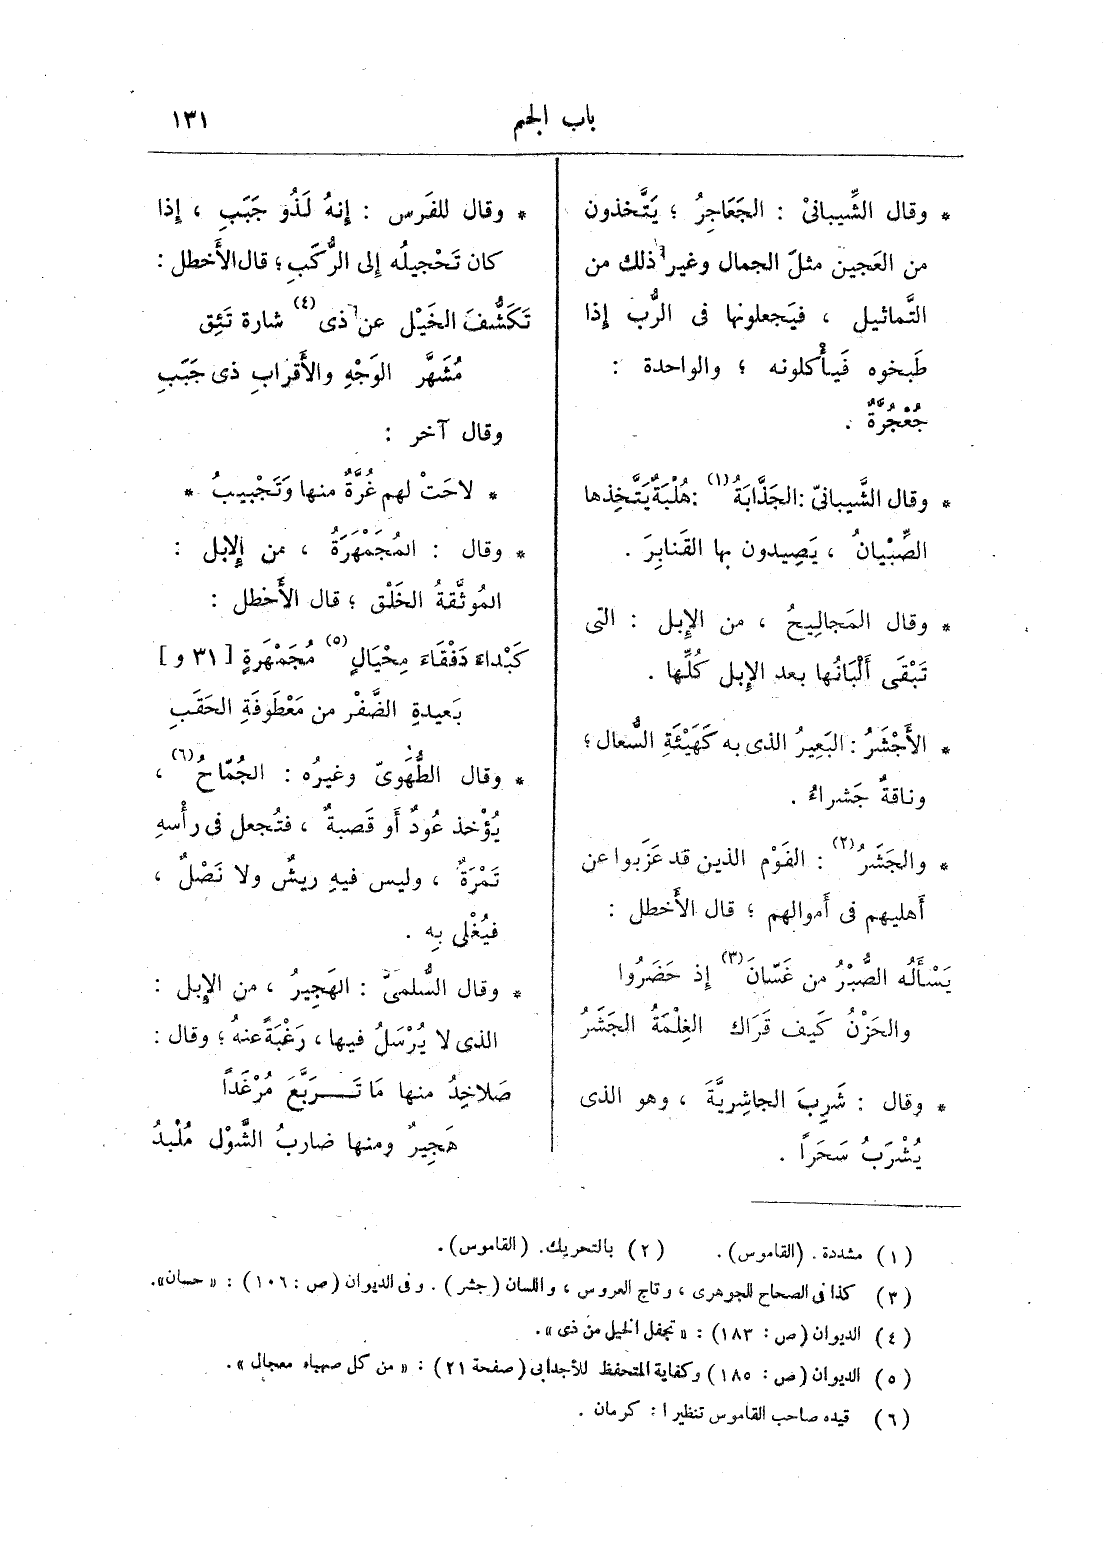 باب الجيم
١٣١
* وقال الشِّيبانىْ : الجَعَاجِرُ ؛ يَتَّخذون
من العَجين مثلَ الجمال وغير ذلك من
التَّماثيل ، فيَجعلونها فى الرُّب إذا
طَبخوه فَيأْكلونه ؛ والواحدة :
جُعْجُرَّةٌ .
* وقال الشَّيبانىّ : الجَذَّابَةُ (١) : هُلْبَةٌ يَتَّخِذها
الصِّبْيانُ ، يَصِيدون بها القَنابِرَ .
* وقال المَجالِيحُ ، من الإِبل : التى
تَبْقَى أَلْبَانُها بعد الإِبل كُلِّها .
* الأَجْشَرُ : البَعِيرُ الذى به كَهَيْئَةِ السُّعال ؛
وناقةٌ جَشراءُ .
* والجَشَرُ (٢) : القَوْم الذين قد عَزَبوا عن
أهليهم فى أَموالهم ؛ قال الأَخطل :
يَسْأَلُه الصُّبْرُ من غَسّانَ (٣) إذ حَضَرُوا
والحَزْنُ كَيف قَرَاك الغِلْمَةُ الجَشَرُ
* وقال : شَرِبَ الجاشِريَّةَ ، وهو الذى
يُشْرَبُ سَحَرًا .
* وقال للفَرس : إنهُ لَذُو جَبَبِ ، إذا
كان تَحْجيلُه إلى الرُّكَبِ ؛ قال الأَخطل :
تَكَشُّفَ الخَيْل عن ذى (٤) شارة تَئِقٍ
مُشَهَّرِ الوَجْهِ والأَقرابِ ذى جَبَبِ
وقال آخر :
* لاحَتْ لهم غُرَّةٌ منها وَتَجْبيبُ *
* وقال : المُجَمْهَرَةُ ، من الإِبل :
المُوثَّقةُ الخَلْق ؛ قال الأَخطل :
كَبْداءَ دَفْقَاءَ مِحْيَالٍ (٥) مُجَمْهَرةٍ [ ٣١ و ]
بَعيدةِ الضَّفْر من مَعْطوفَةِ الحَقَبِ
* وقال الطُّهَوىّ وغيرُه : الجُمّاحُ (٦) ،
يُؤْخذ عُودٌ أَو قَصبةٌ ، فتُجعل فى رأْسهِ
تَمْرَةٌ ، وليس فيهِ ريشٌ ولا نَصْلٌ ،
فيُغْلى بِه .
* وقال السُّلمىّ : الهَجِيرُ ، من الإِبل :
الذى لا يُرْسَلُ فيها ، رَغْبَةً عنهُ ؛ وقال :
صَلاخِدُ منها مَا تَـــرَبَّعَ مُرْغَداً
هَجِيرٌ ومنها ضاربُ الشَّوْل مُلْبدُ
(١) مشددة . (القاموس) . (٢) بالتحريك . (القاموس) .
(٣) كذا فى الصحاح للجوهرى ، وتاج العروس ، واللسان (جشر) . وفى الديوان (ص : ١٠٦) : « حسان» .
(٤) الديوان (ص : ١٨٣) : « تجفل الخيل من ذى » .
(٥) الديوان (ص : ١٨٥) وكفاية المتحفظ للأجدابى (صفحة ٢١) : « من كل صهباء معجال » .
(٦) قيده صاحب القاموس تنظيرا : كرمان .